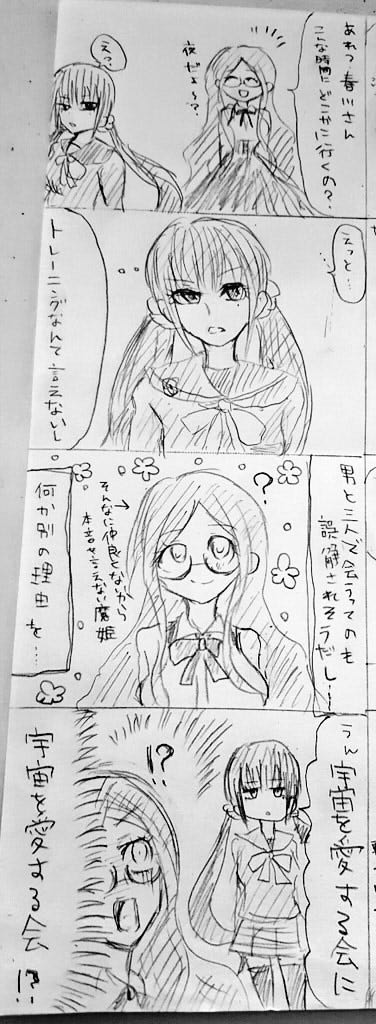 あれっ 春川さん
こんな時間にどこかに行くの?
夜だよる?
えっ?
えっと…
トレーニングなんて言えないし
男と三人で会うってのも
誤解されそうだし…
?
→そんなに仲良くないから
本音を言えない魔姫
何か別の理由を…
うん 宇宙を愛する会に
!?
宇宙を愛する会!?